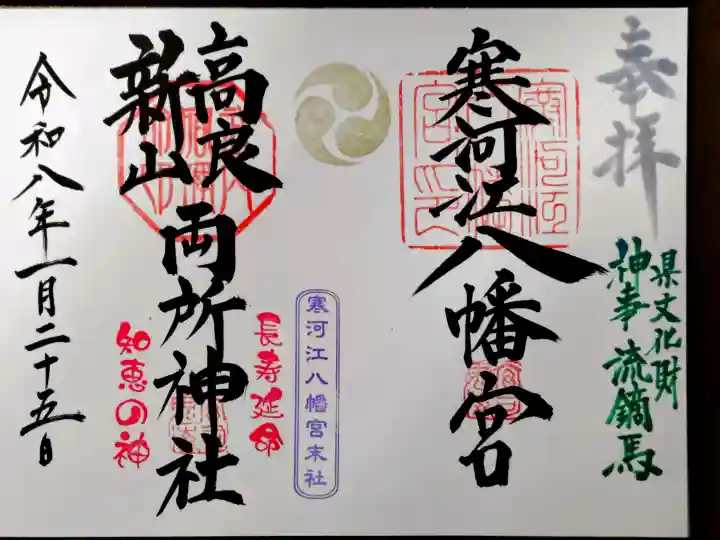 奉拝
県文化財
神事 流鏑馬
寒河江八幡宮
寒河江八幡宮末社
長寿延命
高良
新山
両所神社
知恵の神
令和八年一月二十五日